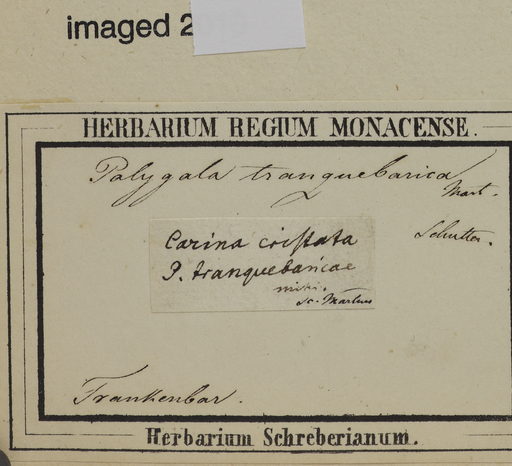 imaged 2
HERBARIUM REGIUM MONACENSE.
Polygala tranquebarica
Mart.
Carina cristata
P. tranquebaricae
mihi.
sc. Martius
Frankenbar.
Herbarium Schreberianum.